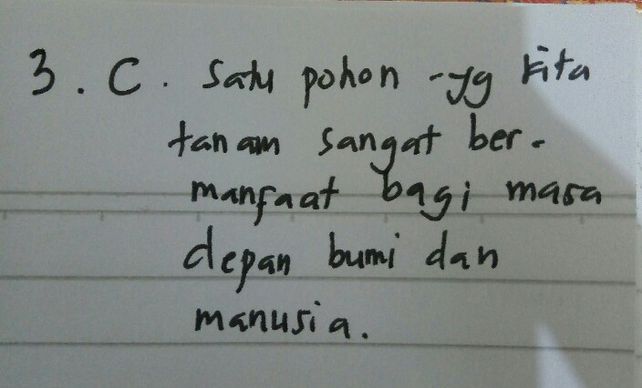 3. C. Satu pohon yg kita
tanam sangat ber-
manfaat bagi masa
depan bumi dan
manusia.